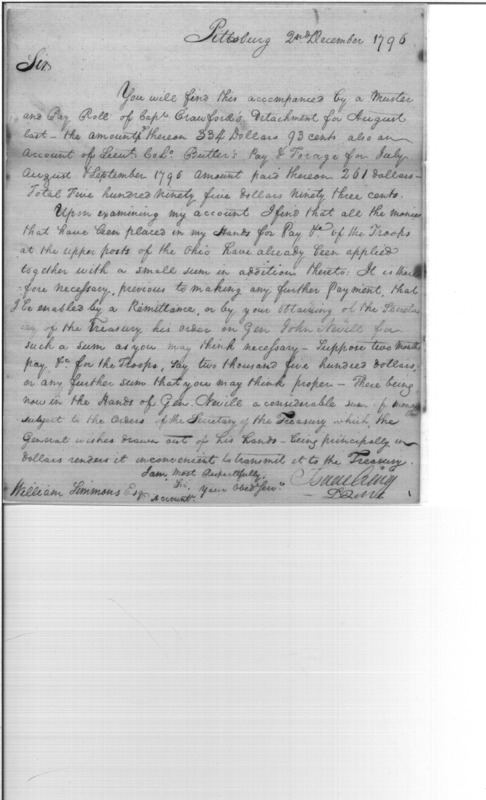 Pittsburg 2nd December 1796
Sir
You will find this accompanied by a Muster
and Pay Roll of Captn Crawford's Detachment for August
last – the amount thereon 334 Dollars 93 cents also an
Account of Lieut. Colo. Butler's Pay & Forage for July
August & September 1796 amount paid thereon 261 dollars –
Total Five hundred ninety five dollars ninety three cents.
Upon examining my account I find that all the monies
that have been placed in my Hands for Pay &c of the Troops
at the upper posts of the Ohio have already been applied
together with a small sum in addition thereto. It is there
fore necessary, previous to making any further Payment, that
I be enabled by a Remittance, or by your obtaining of the Secret
ary of the Treasury his order on Gen John Nevill for
such a sum as you may think necessary – Suppose two months
pay &c for the Troops, say two thousand five hundred dollars,
or any further sum that you may think proper – There being
now in the Hands of Gen. Nevill a considerable sum of money
subject to the Orders of the Secretary of the Treasury which the
General wishes drawn out of his Hands – being principally in
dollars renders it inconvenient to transmit it to the Treasury.
I am most Respectfully
Sir, your Obedt Servt
Isaac Craig
William Simmons Esqr
Accountt